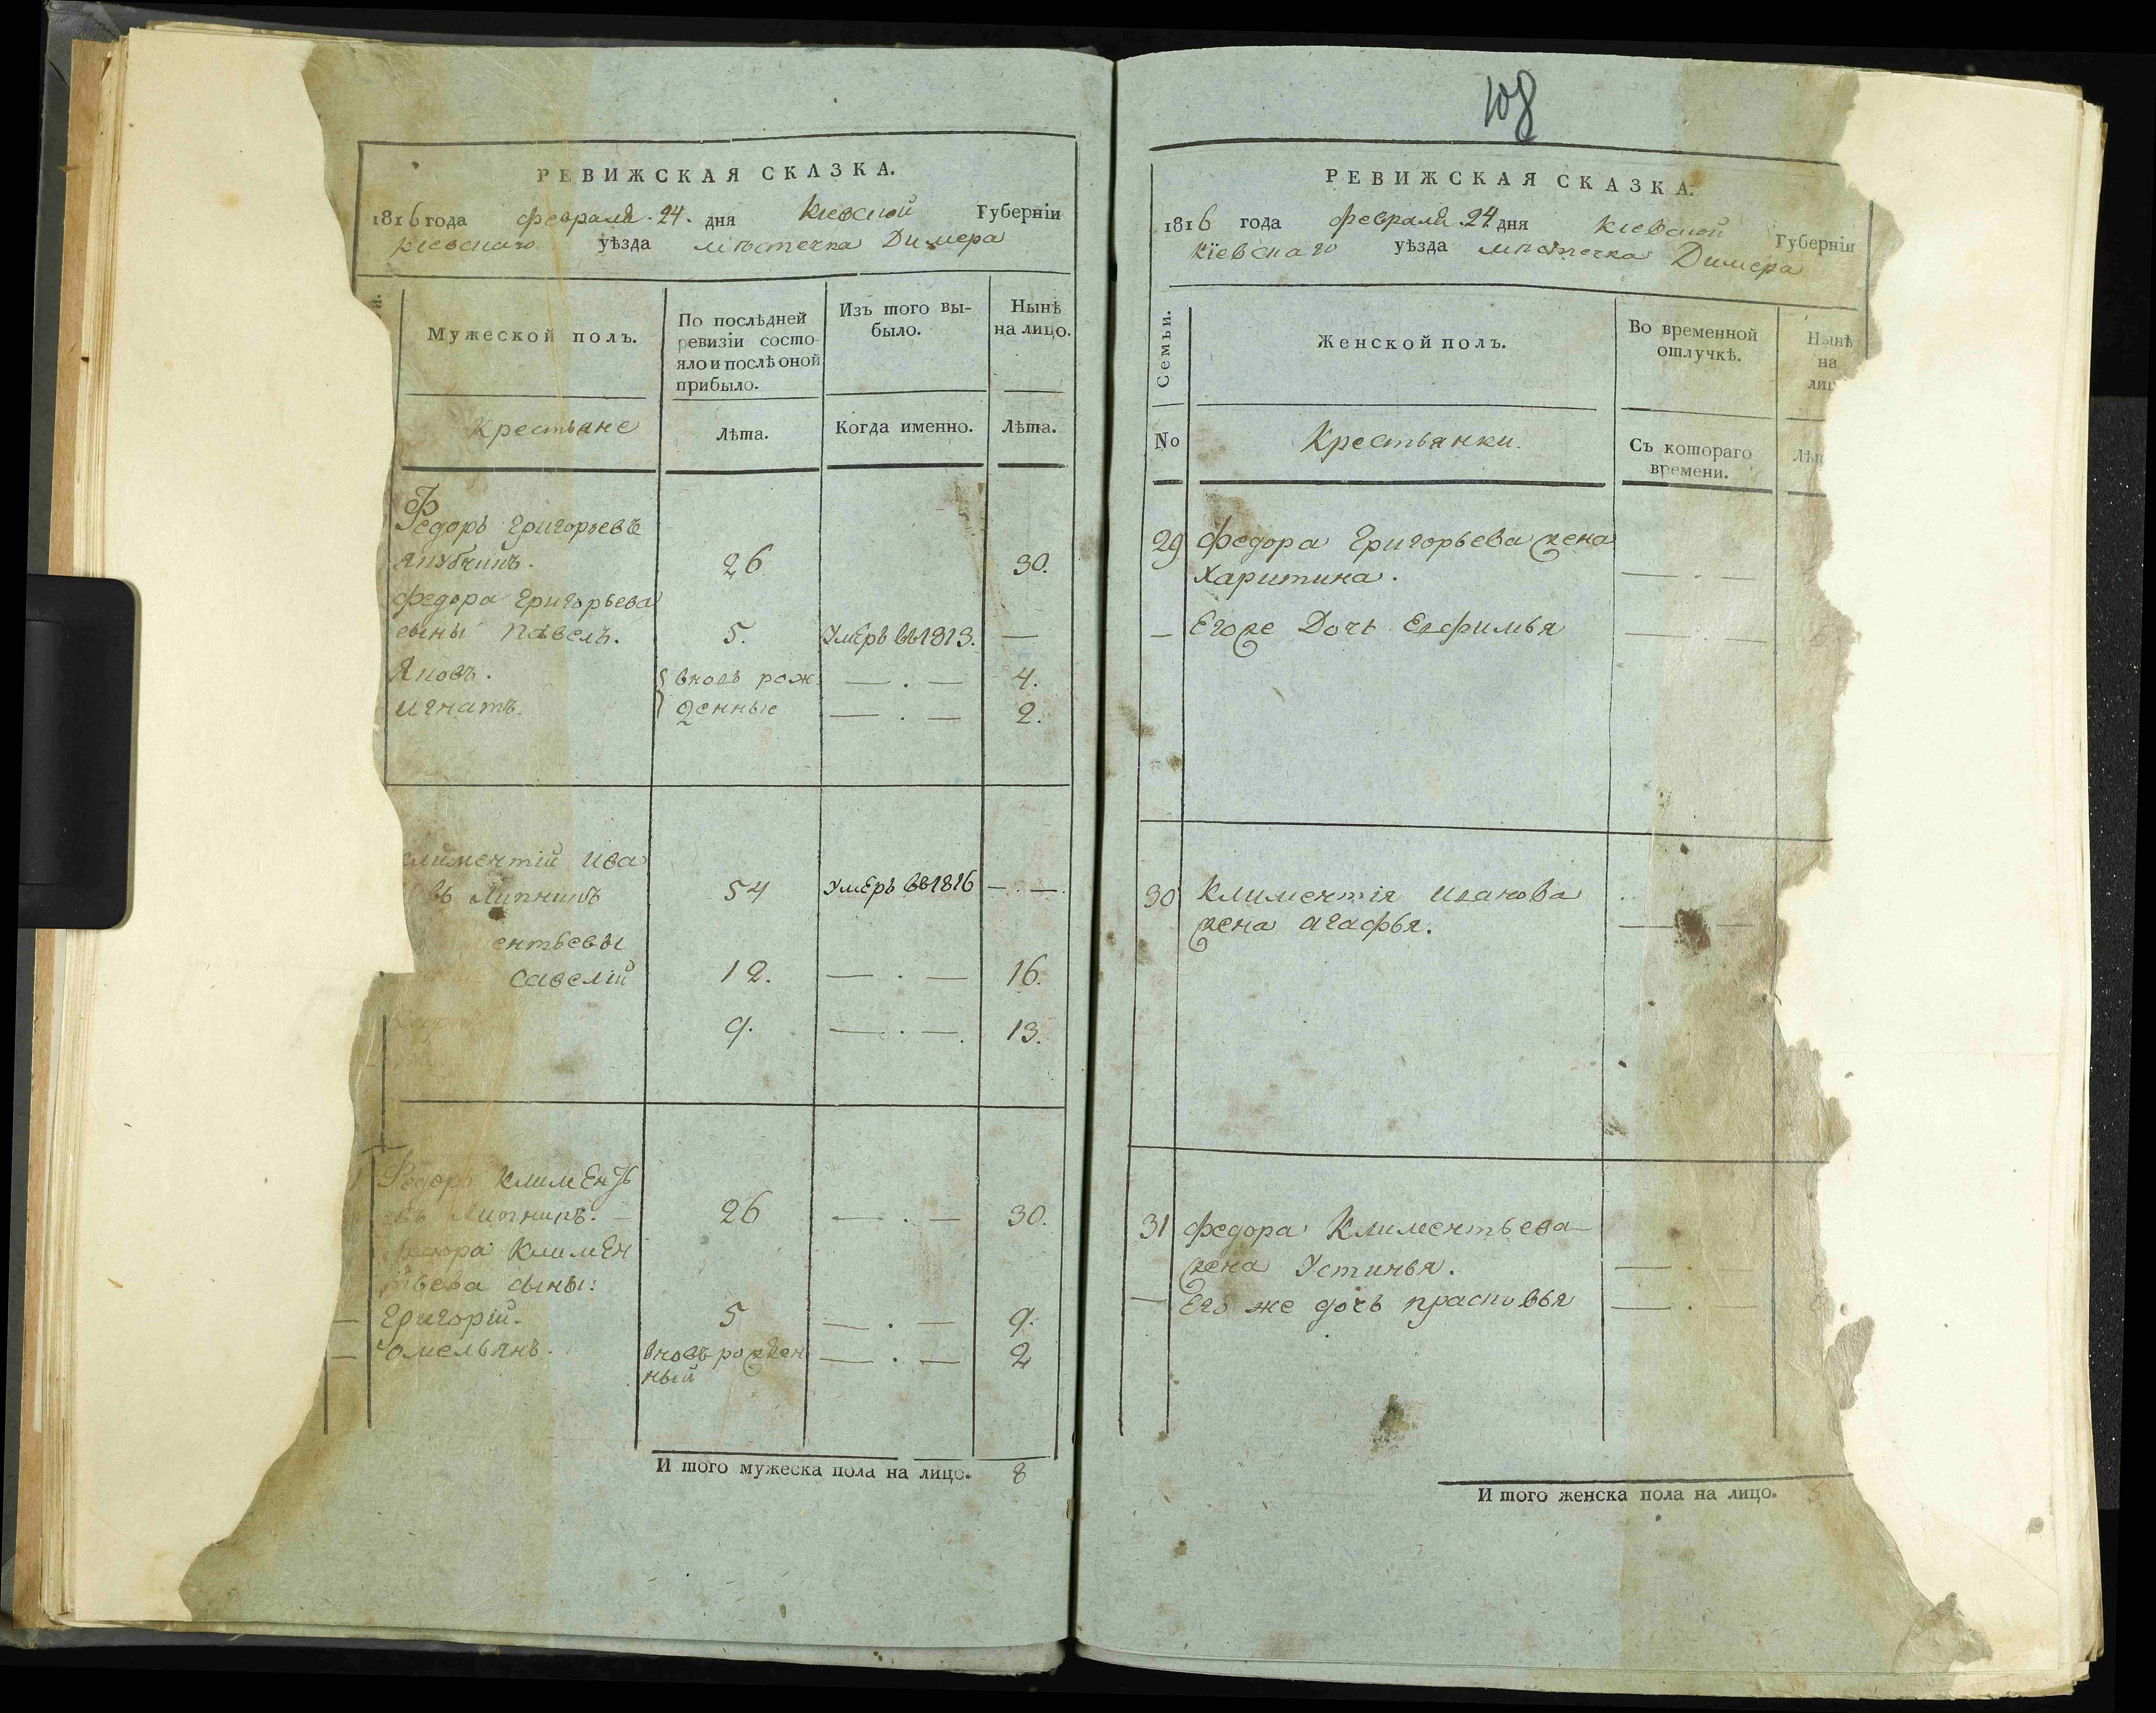 РЕВИЖСКАЯ СКАЗКА.
1816 года февраля 24. дня Кіевской Губерніи
кіевскаго уѣзда мѣстечка Димера
и.
Мужеской полъ.
По послѣдней
ревизіи состо-
яло и послѣ оной
прибыло.
Изъ того вы-
было.
Нынѣ
на лицо.
Крестьяне
Лѣта.
Когда именно.
Лѣта.
Федоръ Григорьевъ
26 30.
Федора Григорьева
сыны Павелъ. 5. Умеръ въ 1813. —
Яковъ. вновь рож — . — 4.
Игнатъ. денные — . — 2.
лиментій Ива
въ Липникъ 54 Умеръ въ 1816 — . —.
ентьевы
Савелій 12. — . — 16.
9. — . —. 13.
Федоръ Климентъ
въ Липникъ. — 26 — . — 30.
Климен
тьева сыны:
— Григорій. 5 — . — 9.
— Омельянъ. вновь рожден — . — 2
ный
И того мужеска пола на лицо. 8
108
РЕВИЖСКАЯ СКАЗКА.
1816 года февраля 24 дня Кіевской Губерніи
Кіевскаго уѣзда мѣстечка Димера
Семьи.
Женской полъ.
Во временной
отлучкѣ.
Нынѣ
на
лиц
No
Крестьянки.
Съ котораго
времени.
Лѣт
29 Федора Григорьева жена
Харитина. — . —
— Егоже Дочь Евфимья — . —
30 Климентія Иванова
жена Агафья. — —
31 Федора Климентьева
жена Устинья. —
— Его же дочь Прасковья — . —
И того женска пола на лицо.